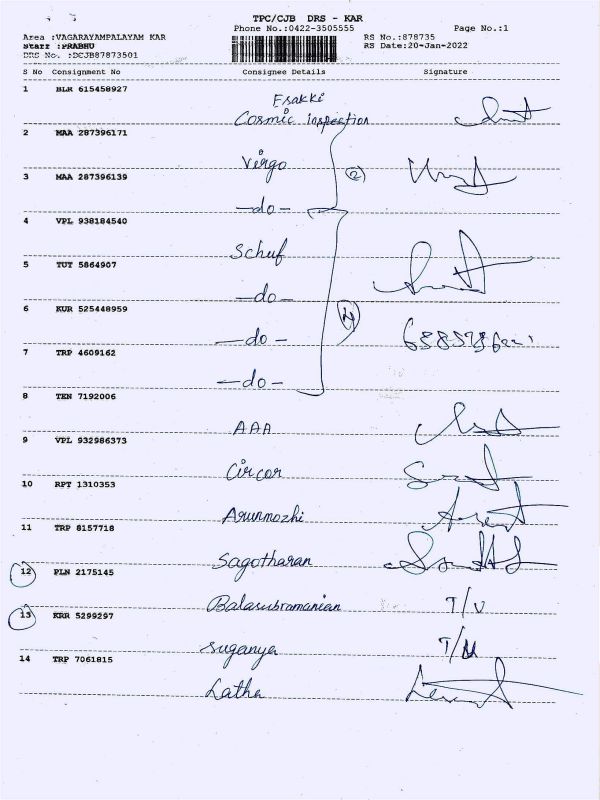 TPC/CJB DRS - KAR
Phone No.:0422-3505555 Page No.:1
Area :VAGARAYAMPALAYAM KAR RS No.:878735
Staff :PRABHU RS Date:20-Jan-2022
DRS No. :DCJB87873501
S No Consignment No Consignee Details Signature
1 BLR 615458927
Esakki
Cosmic inspection
2 MAA 287396171
Virgo
3 MAA 287396139 2
-do-
4 VPL 938184540
Schuf
5 TUT 5864907
-do-
6 KUR 525448959 4
-do-
7 TRP 4609162
-do-
8 TEN 7192006
AAA
9 VPL 932986373
Circor
10 RPT 1310353
Arunmozhi
11 TRP 8157718
Sagotharan
12 PLN 2175145
Balasubramanian T/V
13 KRR 5299297
Suganya T/M
14 TRP 7061815
Latha